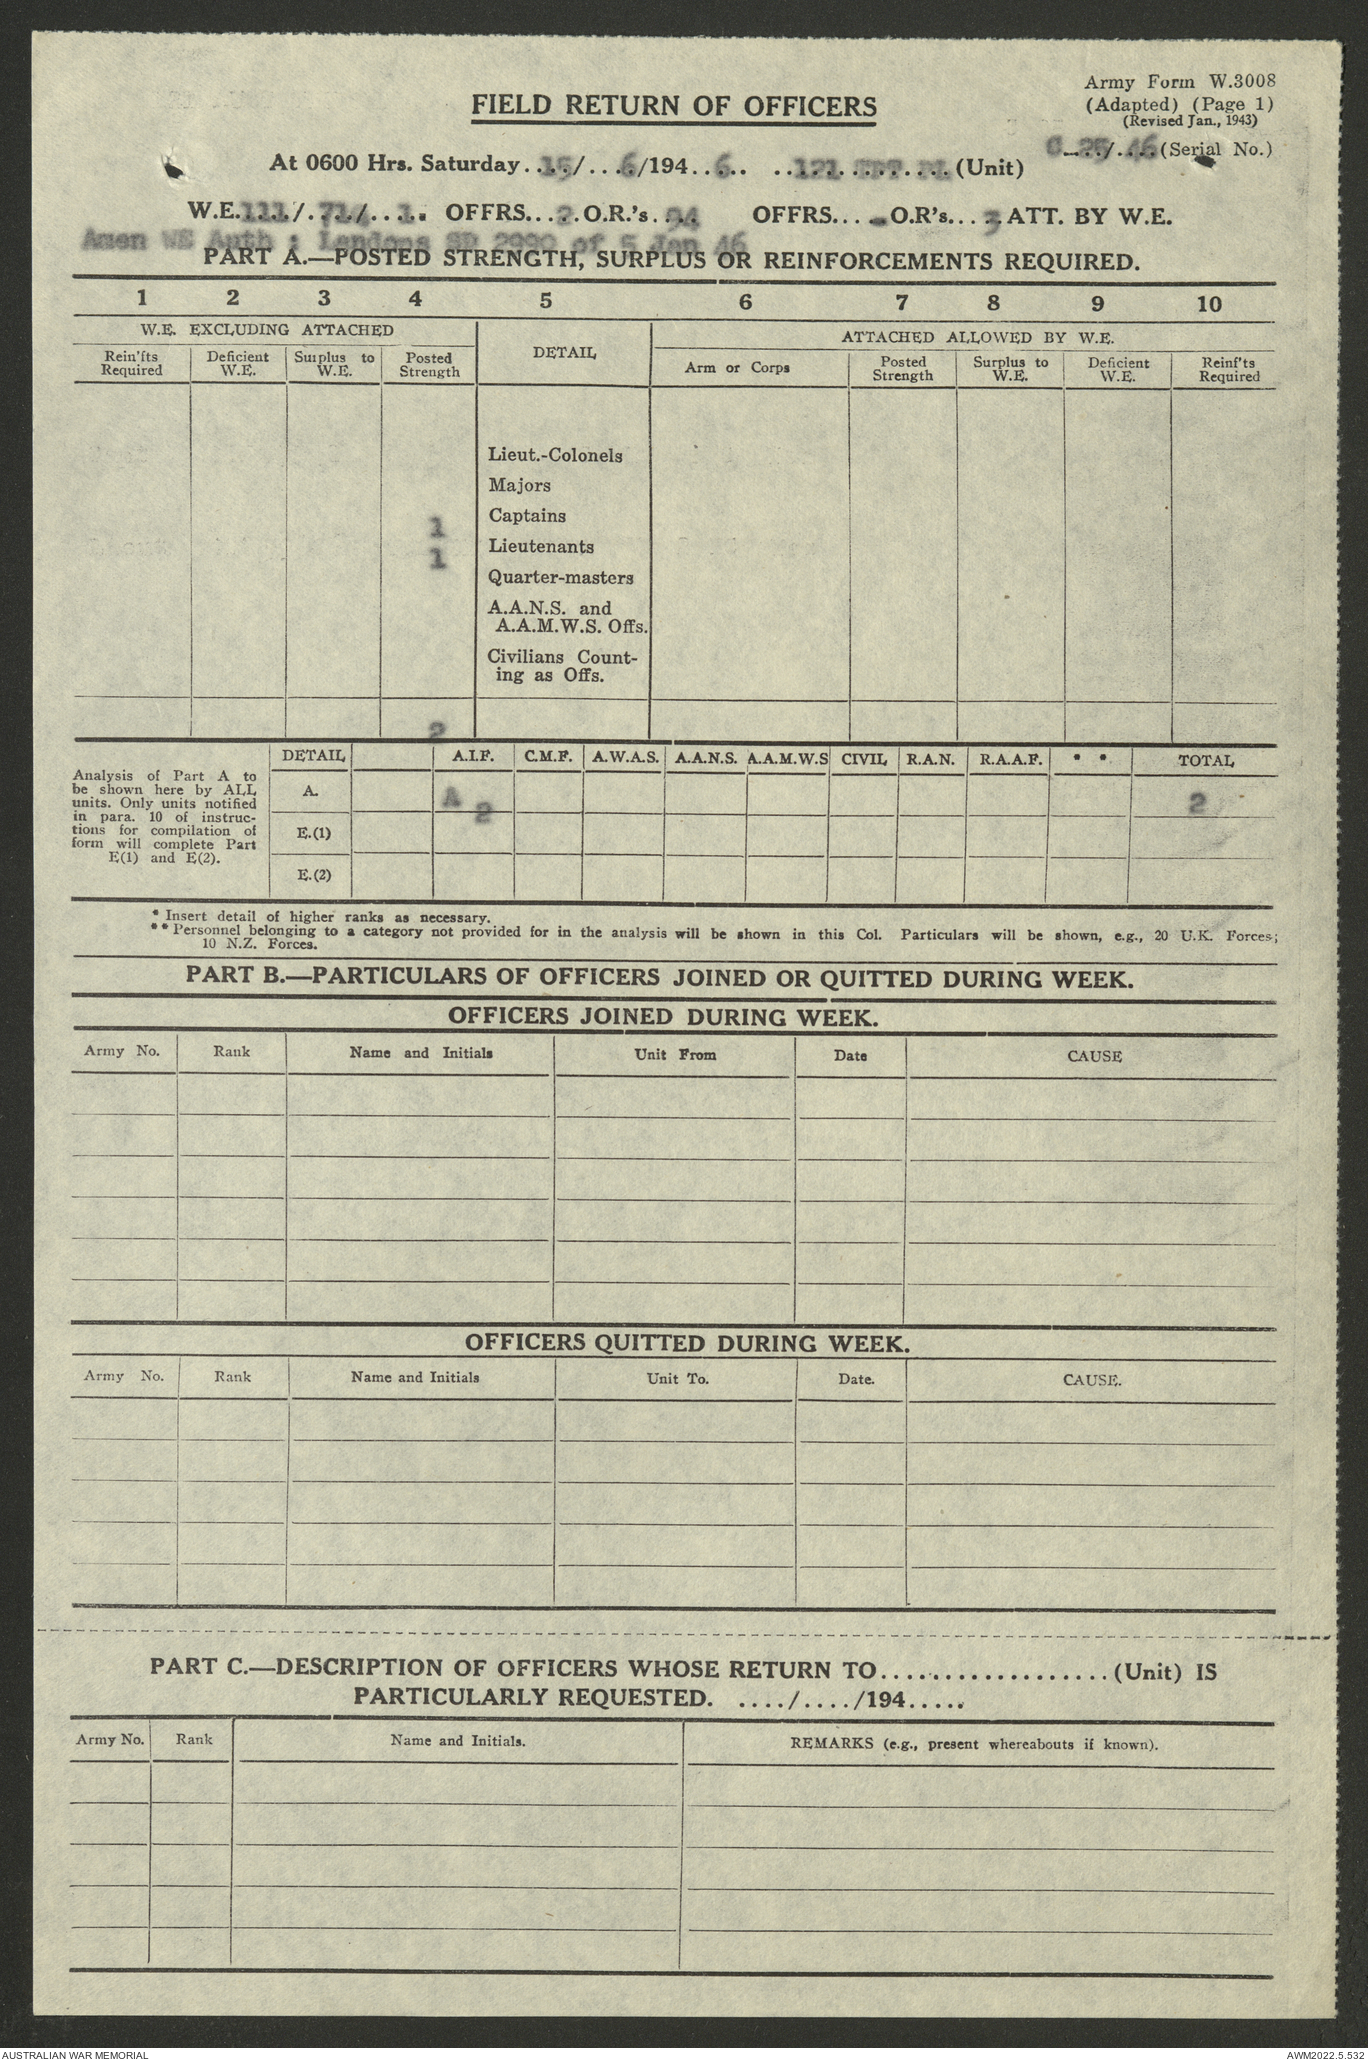 Army Form W.3008
(Adapted) (Page 1)
(Revised Jan., 1943)
FIELD RETURN OF OFFICERS
O 25/46 (Serial No.)
At 0600 Hrs. Saturday....15/...6/194..6.. ..121........(Unit)
W.E.111/.714/..1. OFFRS...2.O.R.'s..94 OFFRS...-O.R's...3 ATT. BY W.E.
Amen WE Auth : Landops SD 2990 of 5 Jan 46
PART A.—POSTED STRENGTH, SURPLUS OR REINFORCEMENTS REQUIRED.
1 2 3 4 5 6 7 8 9 10
W.E. EXCLUDING ATTACHED DETAIL ATTACHED ALLOWED BY W.E.
Rein'fts Required Deficient W.E. Surplus to W.E. Posted Strength Arm or Corps Posted Strength Surplus to W.E. Deficient W.E. Reinf'ts Required
Lieut.-Colonels
Majors
Captains
1
Lieutenants
1
Quarter-masters
A.A.N.S. and
A.A.M.W.S. Offs.
Civilians Count-
ing as Offs.
2
DETAIL A.I.F. C.M.F. A.W.A.S. A.A.N.S. A.A.M.W.S CIVIL R.A.N. R.A.A.F. * * TOTAL
Analysis of Part A to
be shown here by ALL
units. Only units notified
in para. 10 of instruc-
tions for compilation of
form will complete Part
E(1) and E(2).
A. A 2 2
E.(1)
E.(2)
* Insert detail of higher ranks as necessary.
** Personnel belonging to a category not provided for in the analysis will be shown in this Col. Particulars will be shown, e.g., 20 U.K. Forces;
10 N.Z. Forces.
PART B.—PARTICULARS OF OFFICERS JOINED OR QUITTED DURING WEEK.
OFFICERS JOINED DURING WEEK.
Army No. Rank Name and Initials Unit From Date CAUSE
OFFICERS QUITTED DURING WEEK.
Army No. Rank Name and Initials Unit To. Date. CAUSE.
PART C.—DESCRIPTION OF OFFICERS WHOSE RETURN TO...................(Unit) IS
PARTICULARLY REQUESTED. ..../..../194.....
Army No. Rank Name and Initials. REMARKS (e.g., present whereabouts if known).
AUSTRALIAN WAR MEMORIAL AWM2022.5.532